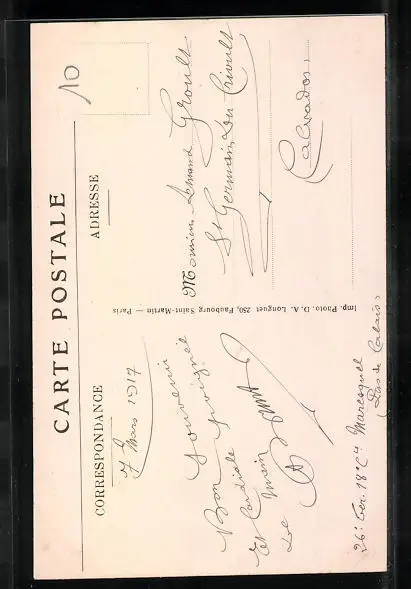 CARTE POSTALE
CORRESPONDANCE
ADRESSE
10
7 Mars 1917
Bon Souvenir
Et Cordiale
main
Le
Monsieur Armand Groult
St Germain du Crioult
Calvados
26e Ter. 18e Cie Maresquel
(Pas de Calais)
Imp. Photo. D. A. Longuet 250, Faubourg Saint-Martin — Paris